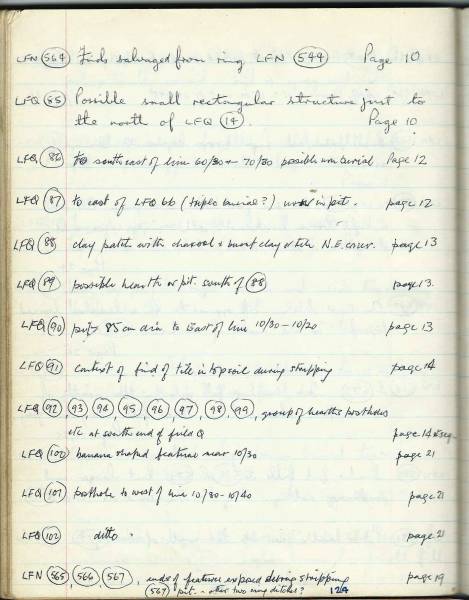 LFN (564) Finds salvaged from ring LFN (544) Page 10
LFQ (85) Possible small rectangular structure just to
the north of LFQ (14). Page 10
LFQ (86) to south east of line 60/30 + 70/30 possible urn burial Page 12
LFQ (87) to east of LFQ 66 (triple burial?) urn in pit. page 12
LFQ (88) clay patch with charcoal + burnt clay or tile N.E. corner. page 13
LFQ (89) possible hearth or pit. south of (88) page 13.
LFQ (90) pit 85 cm dia to east of line 10/30 - 10/20 page 13
LFQ (91) context of find of tile in topsoil during stripping page 14
LFQ (92), (93), (94), (95), (96), (97), (98), (99), group of hearths postholes
etc at south end of field Q page 14 et seq.
LFQ (100) banana shaped feature near 10/30 page 21
LFQ (101) posthole to west of line 10/30 - 10/40 page 21
LFQ (102) ditto. page 21
LFN (565), (566), (567), ends of features exposed during stripping page 19
(567) pit - other two ring ditches? 12A